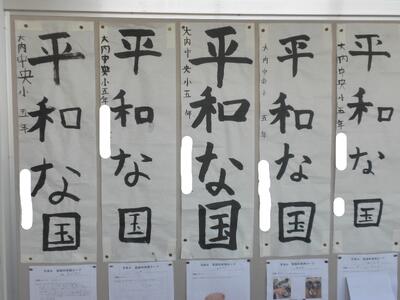 平和な国
大内中央小五年
平和な国
大内中央小五年
平和な国
大内中央小五年
平和な国
大内中央小五年
平和な国
大内中央小五年